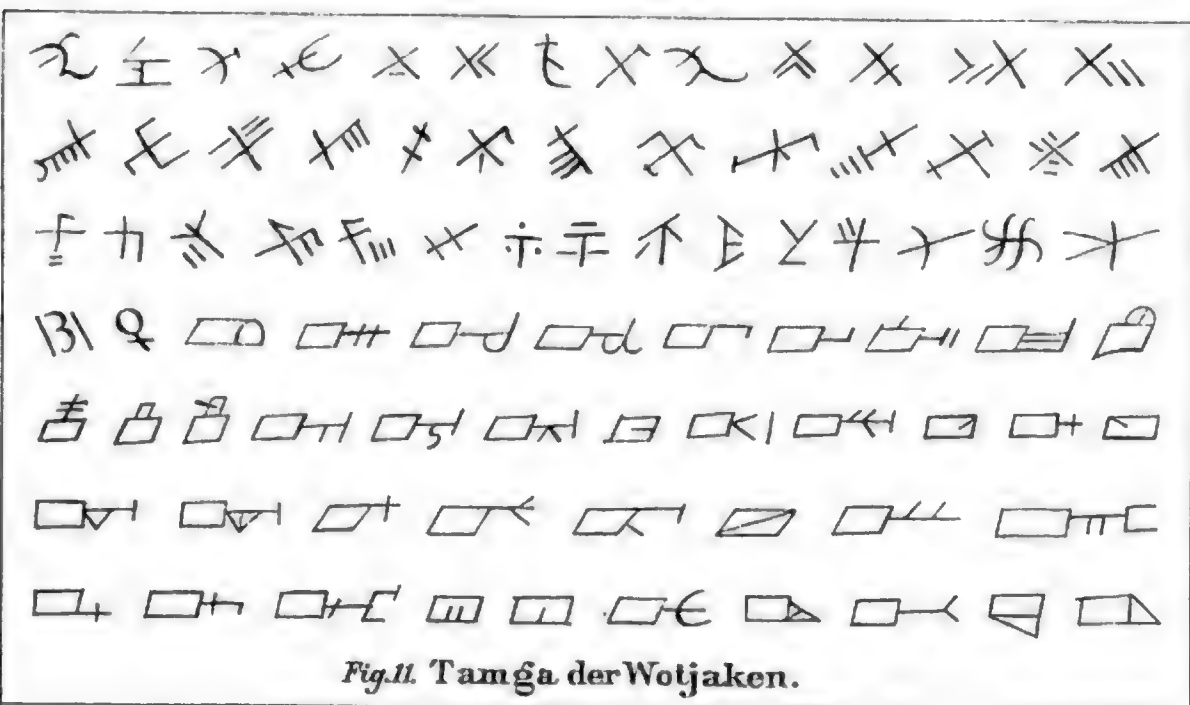 Fig.11. Tamga der Wotjaken.